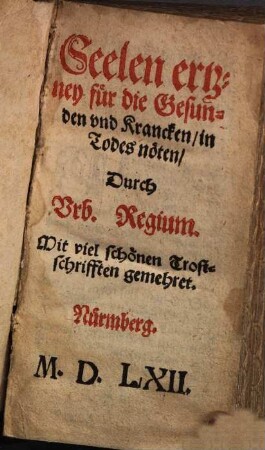 Seelen ertz-
ney für die Gesun-
den vnd Krancken/in
Todes nöten/
Durch
Vrb. Regium.
Mit viel schönen Trost-
schrifften gemehret.
Nürmberg.
M. D. LXII.